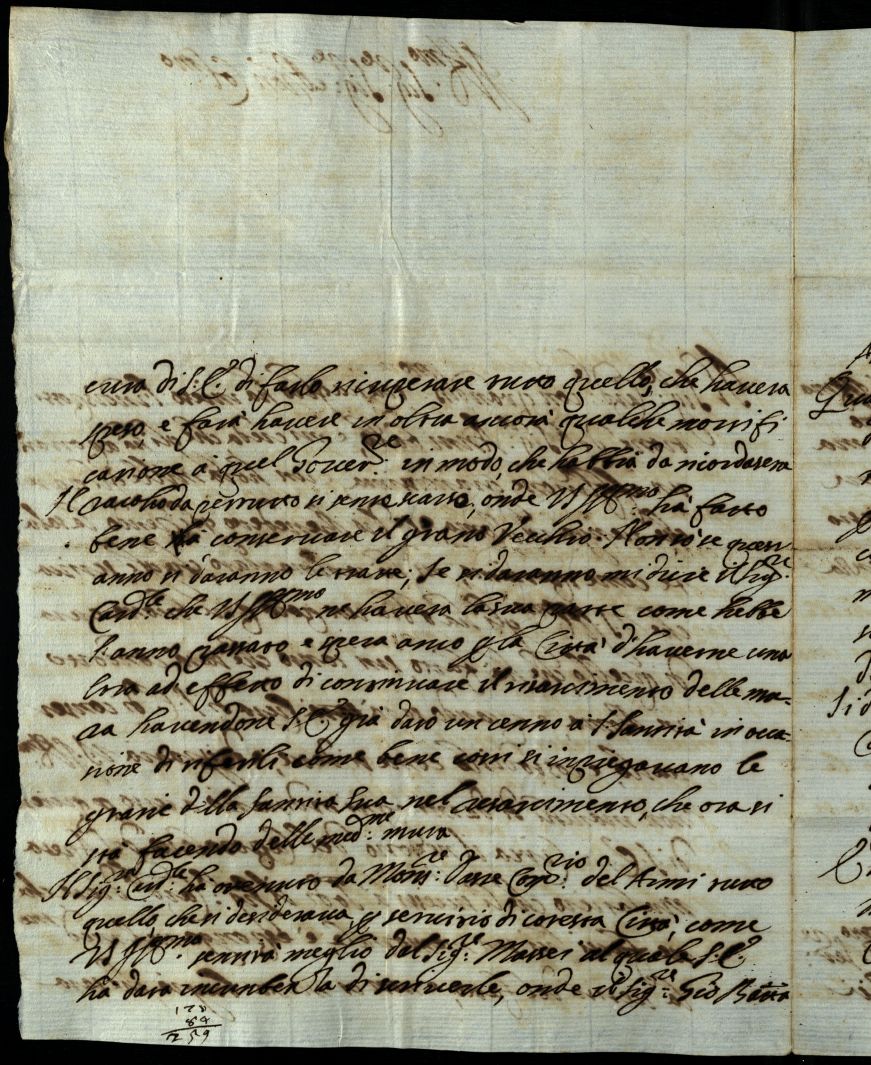 cura di S: E. di farlo ricuperare tutto quello, che haverà
speso, e farà havere in oltra ancora qualche mortifi
catione à quel Gover.re in modo, che habbia da ricordarsene
Il raccolto da per tutto si sente scarso, onde VS Ill.ma hà fatto
bene à conservare il grano Vecchio. Non sò se quest'
anno si daranno le tratte; Se si daranno mi dice il Sig.re
Card.le che VS Ill.ma ne haverà la sua parte come hebbe
l'anno passato e spera anco p la Città d'haverne una
tra ad effetto di continuare il risarcimento delle mu-
ra havendone S: E. già dato un cenno à S. Santità in occa-
sione di riferirli come bene costì si impiegavano le
gratie della Santità Sua nel risarcimento, che ora si
stà facendo delle med.me mura
Il Sig.r Card.le ha ottenuto da Mons.re Com.rio dell'Armi tutto
quello, che si desiderava p servitio di cotesta Città, come
VS Ill.ma sentirà meglio dal Sig.re Massei al quale S: E.
hà data incumbenza di scriverle, onde il Sig.re Gio Batta
84
259